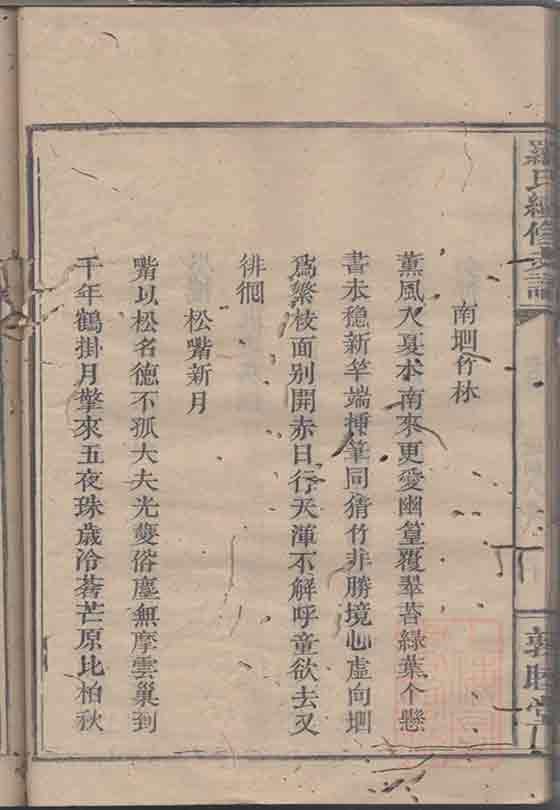 羅氏續修支譜
敦睦堂
南垇竹林
薰風入夏水南來更愛幽篁覆翠苔綠葉个懸
書未穩新竿端挿筆同猜竹非勝境心虛向垇
爲繁枝面別開赤日行天渾不解呼童欲去又
徘徊
松嘴新月
嘴以松名德不孤大夫光㸦俗塵無摩雲巢到
千年鶴掛月擎來五夜珠歲冷蒼芒原比柏秋